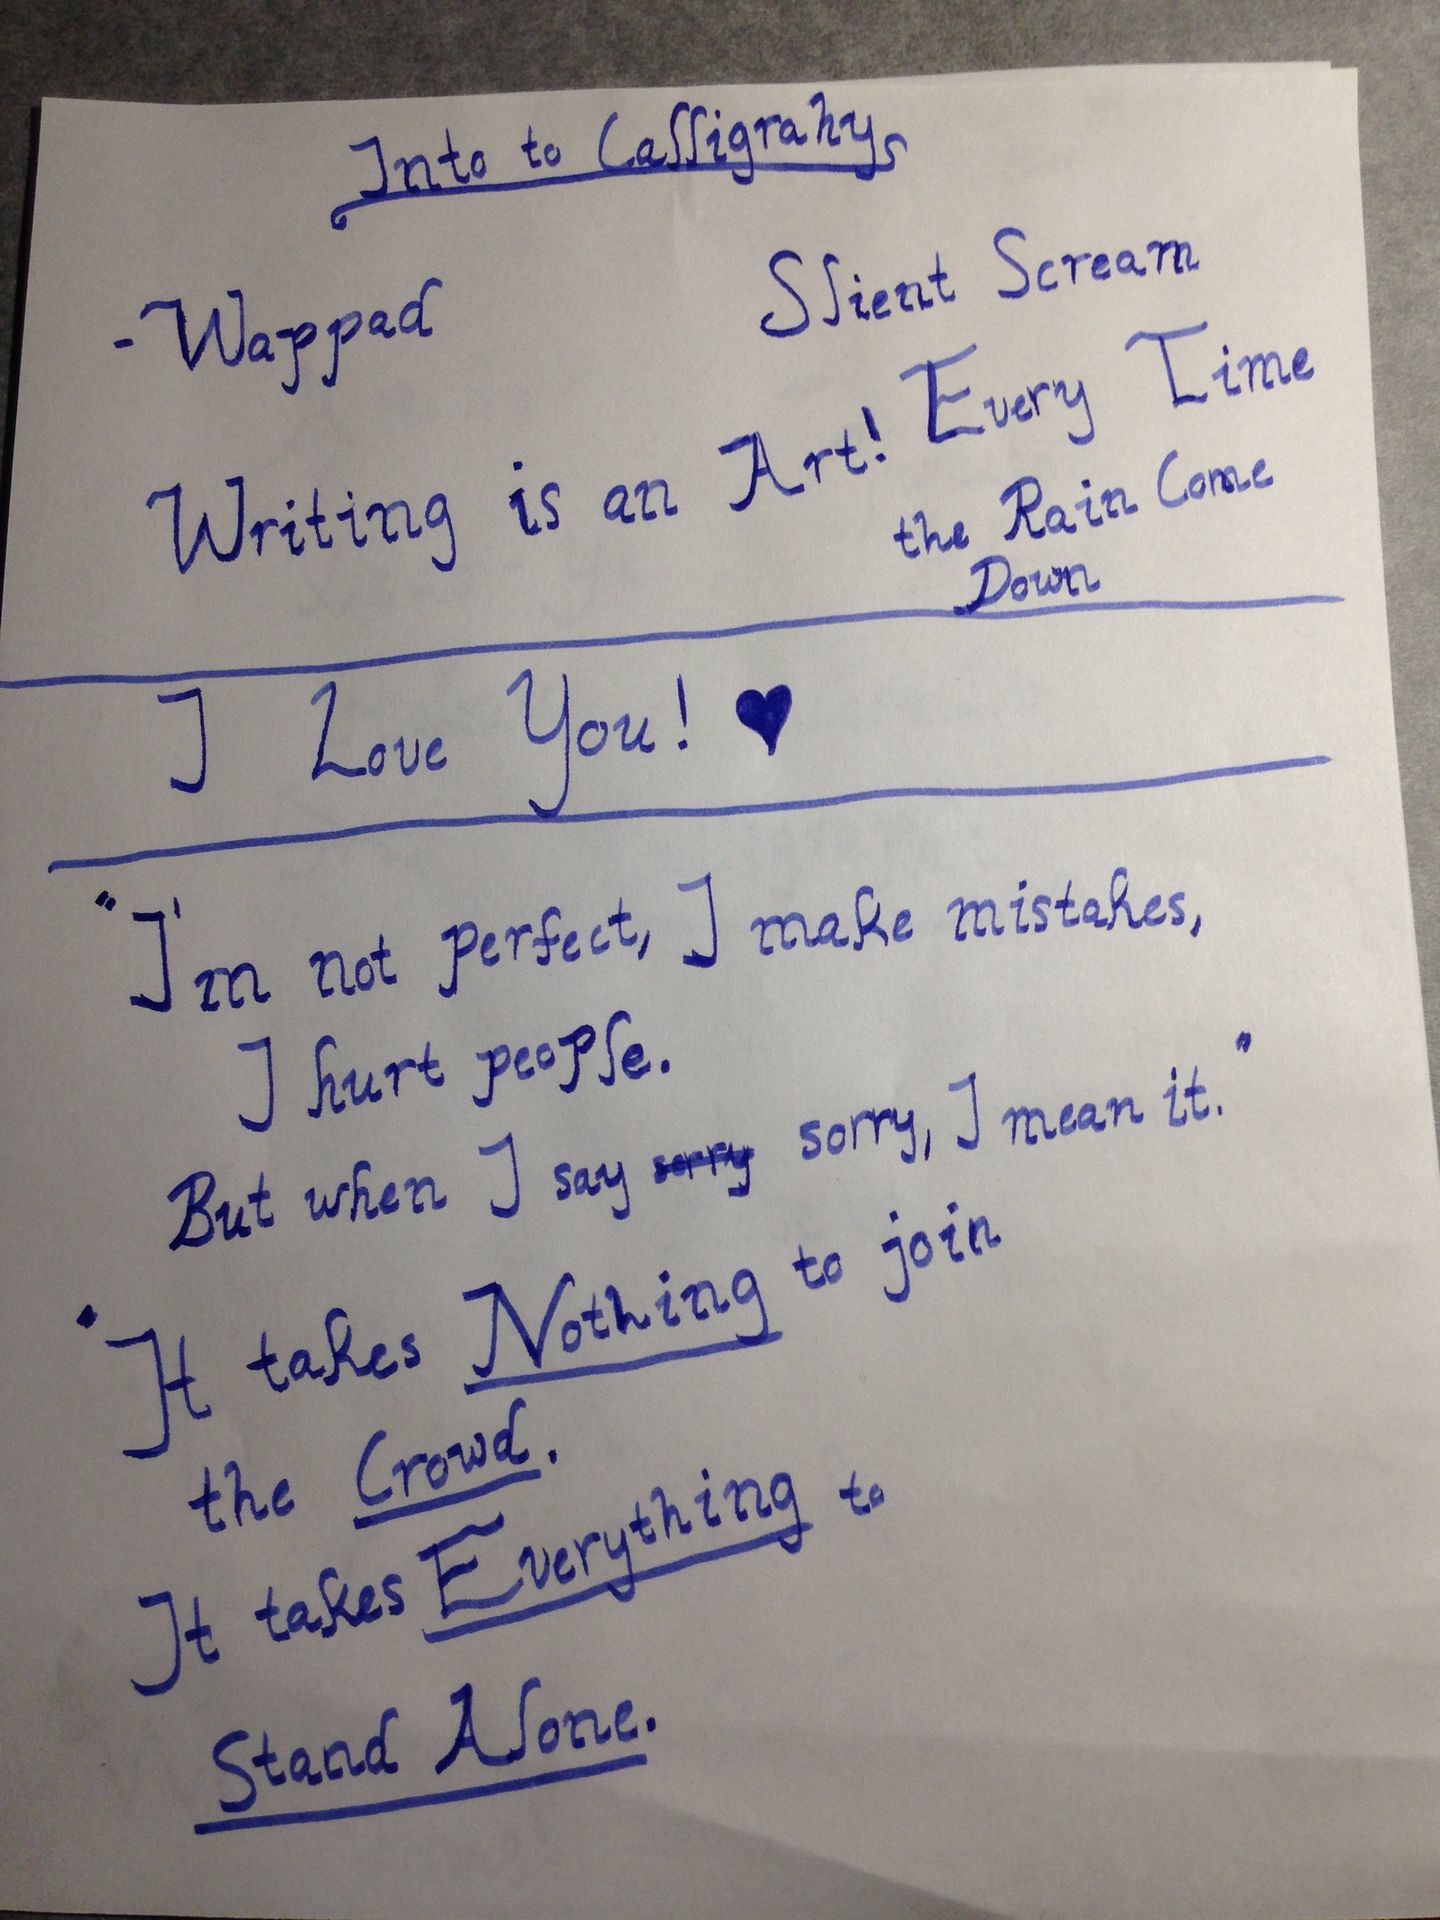 Into to Calligrahy
- Wappad
Slient Scream
Writing is an Art!
Every Time
the Rain Come
Down
I Love You! ♥
"I'm not perfect, I make mistakes,
I hurt people.
But when I say sorry sorry, I mean it."
"It takes Nothing to join
the Crowd.
It takes Everything to
Stand Alone.